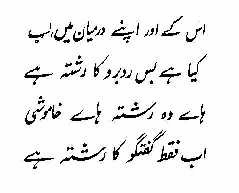 اس کے اور اپنے درمیاں میں اب
کیا ہے بس روبرو کا رشتہ ہے
ہاے وہ رشتہ ہاے خاموشی
اب فقط گفتگو کا رشتہ ہے